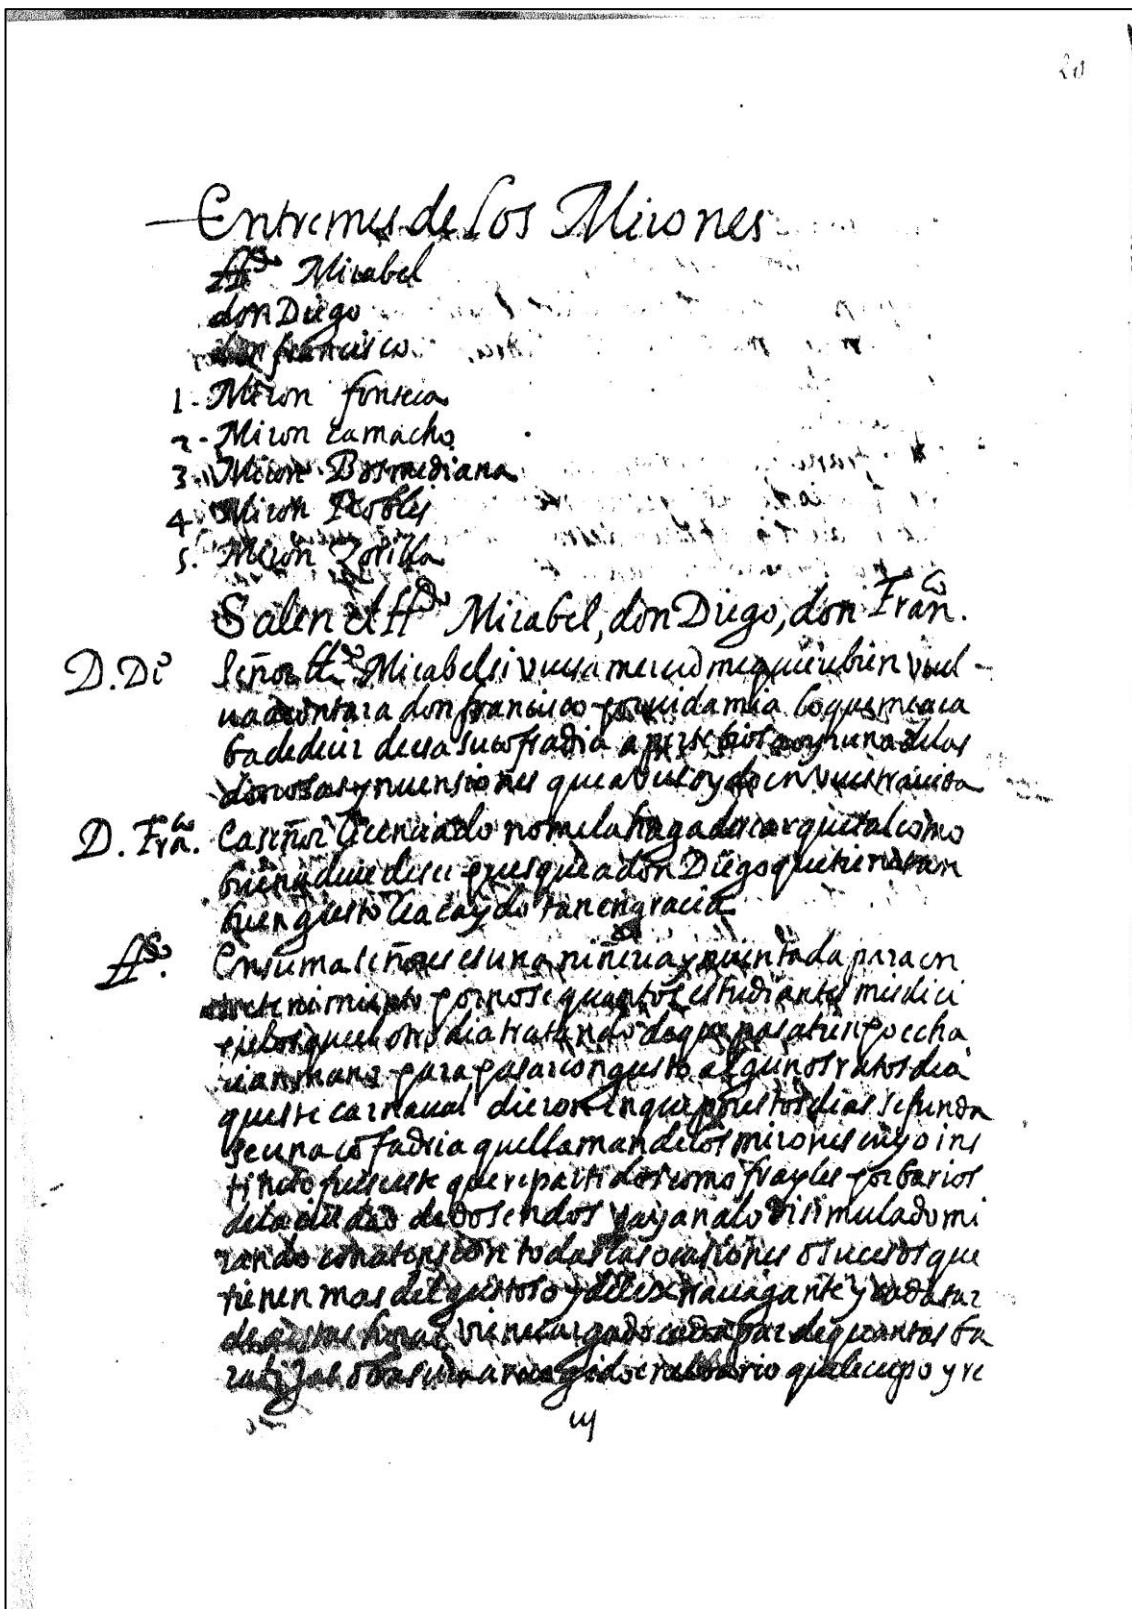 20
Entremes de los Mirones
Ldo Mirabel
don Diego
don francisco
1 - Miron fonseca
2 - Miron camacho
3 - Miron Bosmediana
4 Miron Robles
5. Miron Zorilla
Salen el Ldo Mirabel, don Diego, don Franco.
D. Di° Señor Ldo Mirabel si vuesa merced me quiere bien vuel-
ua a contar a don francisco por vida mia lo que me aca
ba de decir de esa su cofradia por una de las
donosas ynuensiones que a visto y oydo en vuestra vida
D. Franco. Ea señor licenciado no me la haga desear que tal como
buena deue de ser pues que a don Diego que tiene tan
buen gusto le a caydo tan en gracia
Ldo. En suma señores es una niñeria ynuentada para en
tretenimiento por no se quantos estudiantes mis dici
pulos que el otro dia tratando de que pasatienpo echa
rian mano para pasar con gusto algunos ratos dea
queste carnaual dieron en que por estos dias se funda
se una cofadria que llaman de los mirones cuyo ins
tituto fuese este que repartidos como frayles por barios
de la ciudad de dos en dos vayan a lo disimulado mi
rando con atension todas las ocasiones o susesos que
tienen mas del gustoso y del extrauagante y cada
horas viene cargado cada par de quantas ba
ratijas o basura a recogido en el bario que le cupo y re